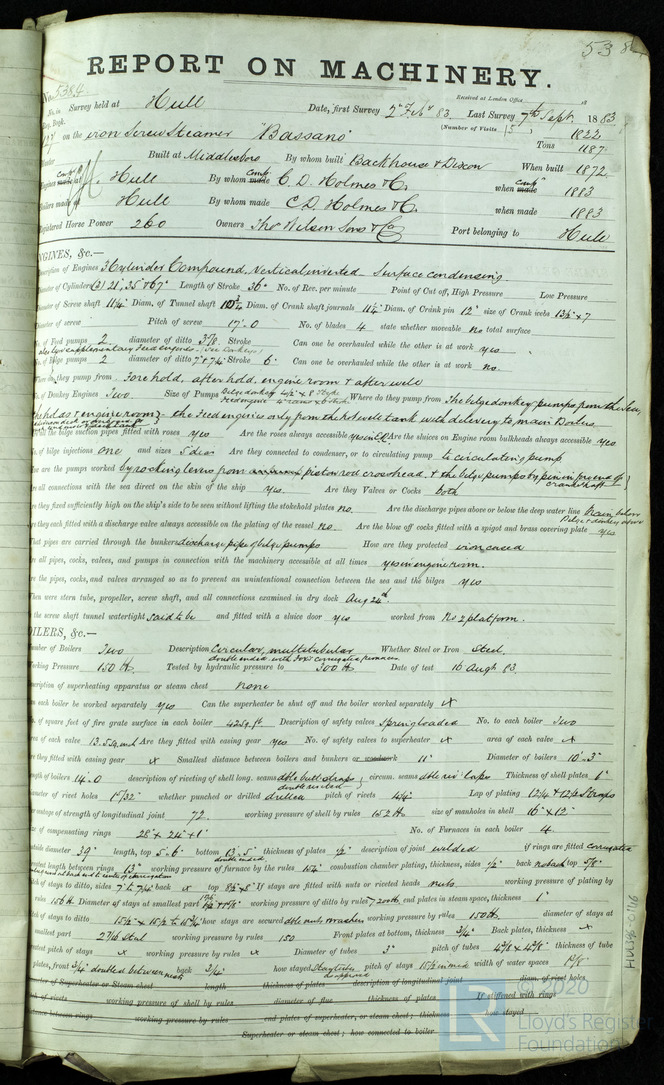 53
REPORT ON MACHINERY.
No. 5384
Received at London Office
No. in Survey held at Hull Date, first Survey 2nd Feby 83 Last Survey 7th Sept. 1883
Reg. Book. (Number of Visits 15)
on the iron Screw Steamer "Bassano" Tons 1822
1187
Built at Middlesbro By whom built Backhouse & Dixon When built 1872
Engines made at Hull By whom made C. D. Holmes & Co. when made 1883
Boilers made at Hull By whom made C. D. Holmes & Co. when made 1883
Registered Horse Power 260 Owners Thos Wilson Sons & Co Port belonging to Hull
ENGINES, &c.—
Description of Engines 3 Cylinder Compound, Vertical inverted Surface condensing.
Diameter of Cylinders (3) 21", 35" & 67" Length of Stroke 36" No. of Rev. per minute Point of Cut off, High Pressure Low Pressure
Diameter of Screw shaft 11¼" Diam. of Tunnel shaft 10¾ Diam. of Crank shaft journals 11¼ Diam. of Crank pin 12" size of Crank webs 13½" x 7
Diameter of screw Pitch of screw 17'. 0 No. of blades 4 state whether moveable no total surface
No. of Feed pumps 2 diameter of ditto 3⅞ Stroke Can one be overhauled while the other is at work yes
also two supplementary Feed engines (see Donkeys)
No. of Bilge pumps 2 diameter of ditto Stroke 6" Can one be overhauled while the other is at work no.
Where do they pump from Fore hold, after hold, engine room & after well
No. of Donkey Engines Two Size of Pumps Where do they pump from The bilge donkey pumps from the Sea,
the holds & engine room - the Feed engines only from the hot well tank with delivery to main Boilers
Are all the bilge suction pipes fitted with roses yes Are the roses always accessible yes Are the sluices on Engine room bulkheads always accessible yes
No. of bilge injections one and sizes 5 dia Are they connected to condenser, or to circulating pump to circulating pump
How are the pumps worked by rocking levers from piston rod crosshead, & the bilge pumps by pin in fore end of crank shaft
Are all connections with the sea direct on the skin of the ship yes. Are they Valves or Cocks both
Are they fixed sufficiently high on the ship's side to be seen without lifting the stokehold plates no. Are the discharge pipes above or below the deep water line Main below
Bilge & donkey above
Are they each fitted with a discharge valve always accessible on the plating of the vessel no Are the blow off cocks fitted with a spigot and brass covering plate yes
What pipes are carried through the bunkers discharge pipe of bilge pumps How are they protected iron cased
Are all pipes, cocks, valves, and pumps in connection with the machinery accessible at all times yes in engine room.
Are the pipes, cocks, and valves arranged so as to prevent an unintentional connection between the sea and the bilges yes
When were stern tube, propeller, screw shaft, and all connections examined in dry dock Aug 24th.
Is the screw shaft tunnel watertight said to be and fitted with a sluice door yes worked from No 2 platform.
BOILERS, &c.—
Number of Boilers Two Description Circular, multitubular Whether Steel or Iron Steel.
double ended with Fox's corrugated furnaces
Working Pressure 150 lb. Tested by hydraulic pressure to 300 lb Date of test 16 Augt 83.
Description of superheating apparatus or steam chest None
Can each boiler be worked separately yes Can the superheater be shut off and the boiler worked separately x
No. of square feet of fire grate surface in each boiler Description of safety valves Spring loaded No. to each boiler Two
Area of each valve 13.5 sq. inch Are they fitted with easing gear yes No. of safety valves to superheater x area of each valve x
Are they fitted with easing gear x Smallest distance between boilers and bunkers or woodwork 11" Diameter of boilers 10'-3"
Length of boilers 14'.0 description of riveting of shell long. seams dble butt straps; circum. seams dble riv. laps Thickness of shell plates 1"
double riveted
Diameter of rivet holes 1⁵⁄₃₂" whether punched or drilled drilled pitch of rivets Lap of plating
Percentage of strength of longitudinal joint 72. working pressure of shell by rules 152 lb size of manholes in shell 16" x 12"
Size of compensating rings 28" x 24" x 1" No. of Furnaces in each boiler 4.
Outside diameter 39" length, top 5'.6 bottom 13'.5" thickness of plates ½" description of joint welded if rings are fitted corrugated
Greatest length between rings 13" working pressure of furnace by the rules 154 combustion chamber plating, thickness, sides ½" back top ⅝"
Pitch of stays to ditto, sides 7" to 7¾" back x top If stays are fitted with nuts or riveted heads nuts. working pressure of plating by
rules 156 lb Diameter of stays at smallest part working pressure of ditto by rules end plates in steam space, thickness 1"
Pitch of stays to ditto how stays are secured dble nuts & washers working pressure by rules 150 lb. diameter of stays at
smallest part working pressure by rules 150 Front plates at bottom, thickness ¾" Back plates, thickness x
Greatest pitch of stays x working pressure by rules x Diameter of tubes 3" pitch of tubes thickness of tube
plates, front ¾" doubled between nests back ¾" how stayed Stay tubes pitch of stays width of water spaces
Diameter of Superheater or Steam chest length thickness of plates description of longitudinal joint diam. of rivet holes
Pitch of rivets working pressure of shell by rules diameter of flue thickness of plates If stiffened with rings
distance between rings working pressure by rules end plates of superheater, or steam chest; thickness how stayed
Superheater or steam chest; how connected to boiler
HUL396-0116
© 2020
LR
Lloyd's Register
Foundation